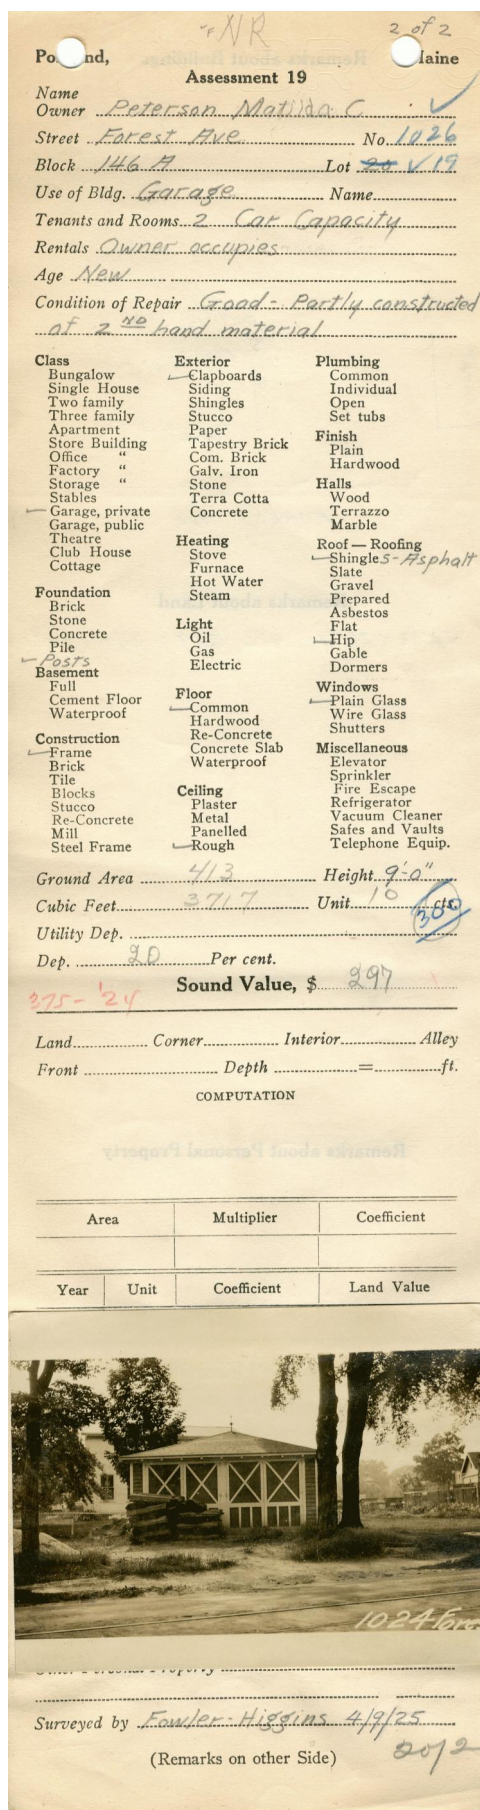 NR
2 of 2
Po nd, Maine
Assessment 19
Name
Owner Peterson Matilda C.
Street Forest Ave. No. 1026
Block 146 A Lot 20 19
Use of Bldg. Garage Name
Tenants and Rooms 2 Car Capacity
Rentals Owner occupies
Age New
Condition of Repair Good - Partly constructed
of 2ND hand material
Class
Bungalow
Single House
Two family
Three family
Apartment
Store Building
Office "
Factory "
Storage "
Stables
Garage, private
Garage, public
Theatre
Club House
Cottage
Foundation
Brick
Stone
Concrete
Pile
Posts
Basement
Full
Cement Floor
Waterproof
Construction
Frame
Brick
Tile
Blocks
Stucco
Re-Concrete
Mill
Steel Frame
Exterior
Clapboards
Siding
Shingles
Stucco
Paper
Tapestry Brick
Com. Brick
Galv. Iron
Stone
Terra Cotta
Concrete
Heating
Stove
Furnace
Hot Water
Steam
Light
Oil
Gas
Electric
Floor
Common
Hardwood
Re-Concrete
Concrete Slab
Waterproof
Ceiling
Plaster
Metal
Panelled
Rough
Plumbing
Common
Individual
Open
Set tubs
Finish
Plain
Hardwood
Halls
Wood
Terrazzo
Marble
Roof — Roofing
Shingles - Asphalt
Slate
Gravel
Prepared
Asbestos
Flat
Hip
Gable
Dormers
Windows
Plain Glass
Wire Glass
Shutters
Miscellaneous
Elevator
Sprinkler
Fire Escape
Refrigerator
Vacuum Cleaner
Safes and Vaults
Telephone Equip.
Ground Area 413 Height 9'-0"
Cubic Feet 3717 Unit 10 cts.
300
Utility Dep.
Dep. 20 Per cent.
Sound Value, $ 297
375 - '24
Land Corner Interior Alley
Front Depth = ft.
COMPUTATION
Remarks about Personal Property
Area Multiplier Coefficient
Year Unit Coefficient Land Value
1024 Fore
Other Personal Property
Surveyed by Fowler-Higgins 4/9/25
(Remarks on other Side)
2 of 2